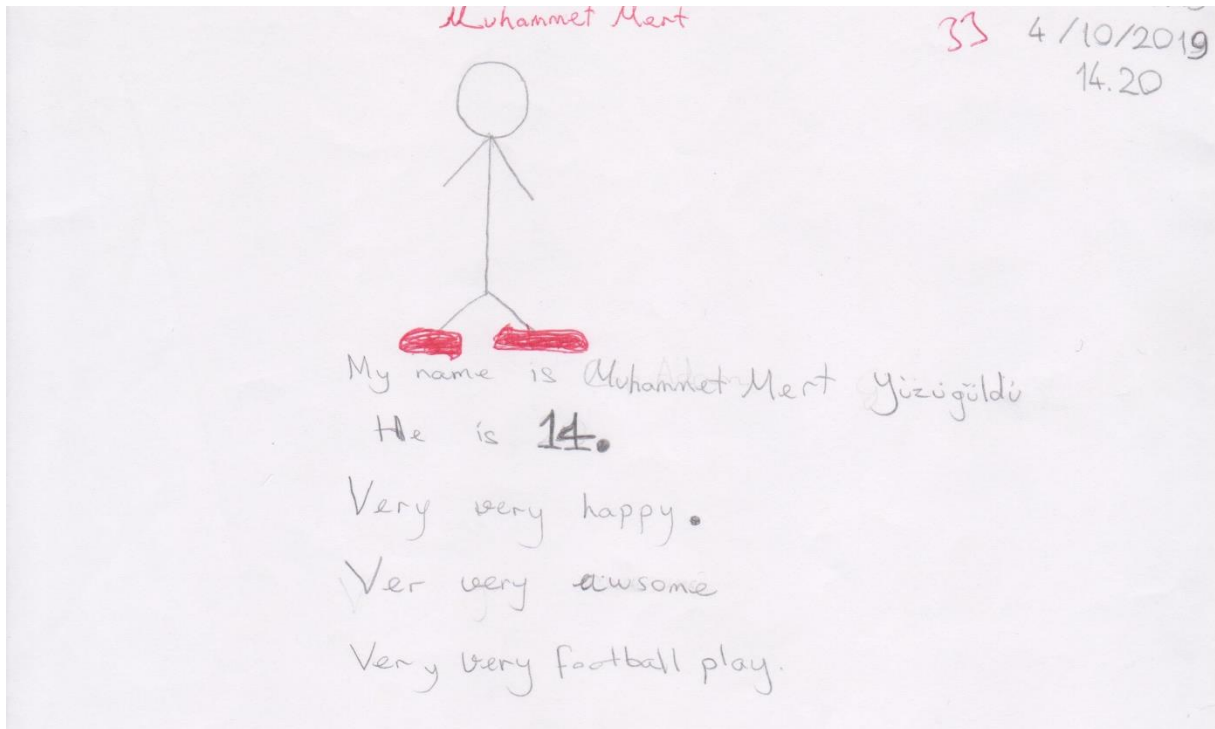 Muhammet Mert 33 4/10/2019
14.20
My name is Muhammet Mert Yüzügüldü
He is 14.
Very very happy.
Ver very awsome
Very very football play.